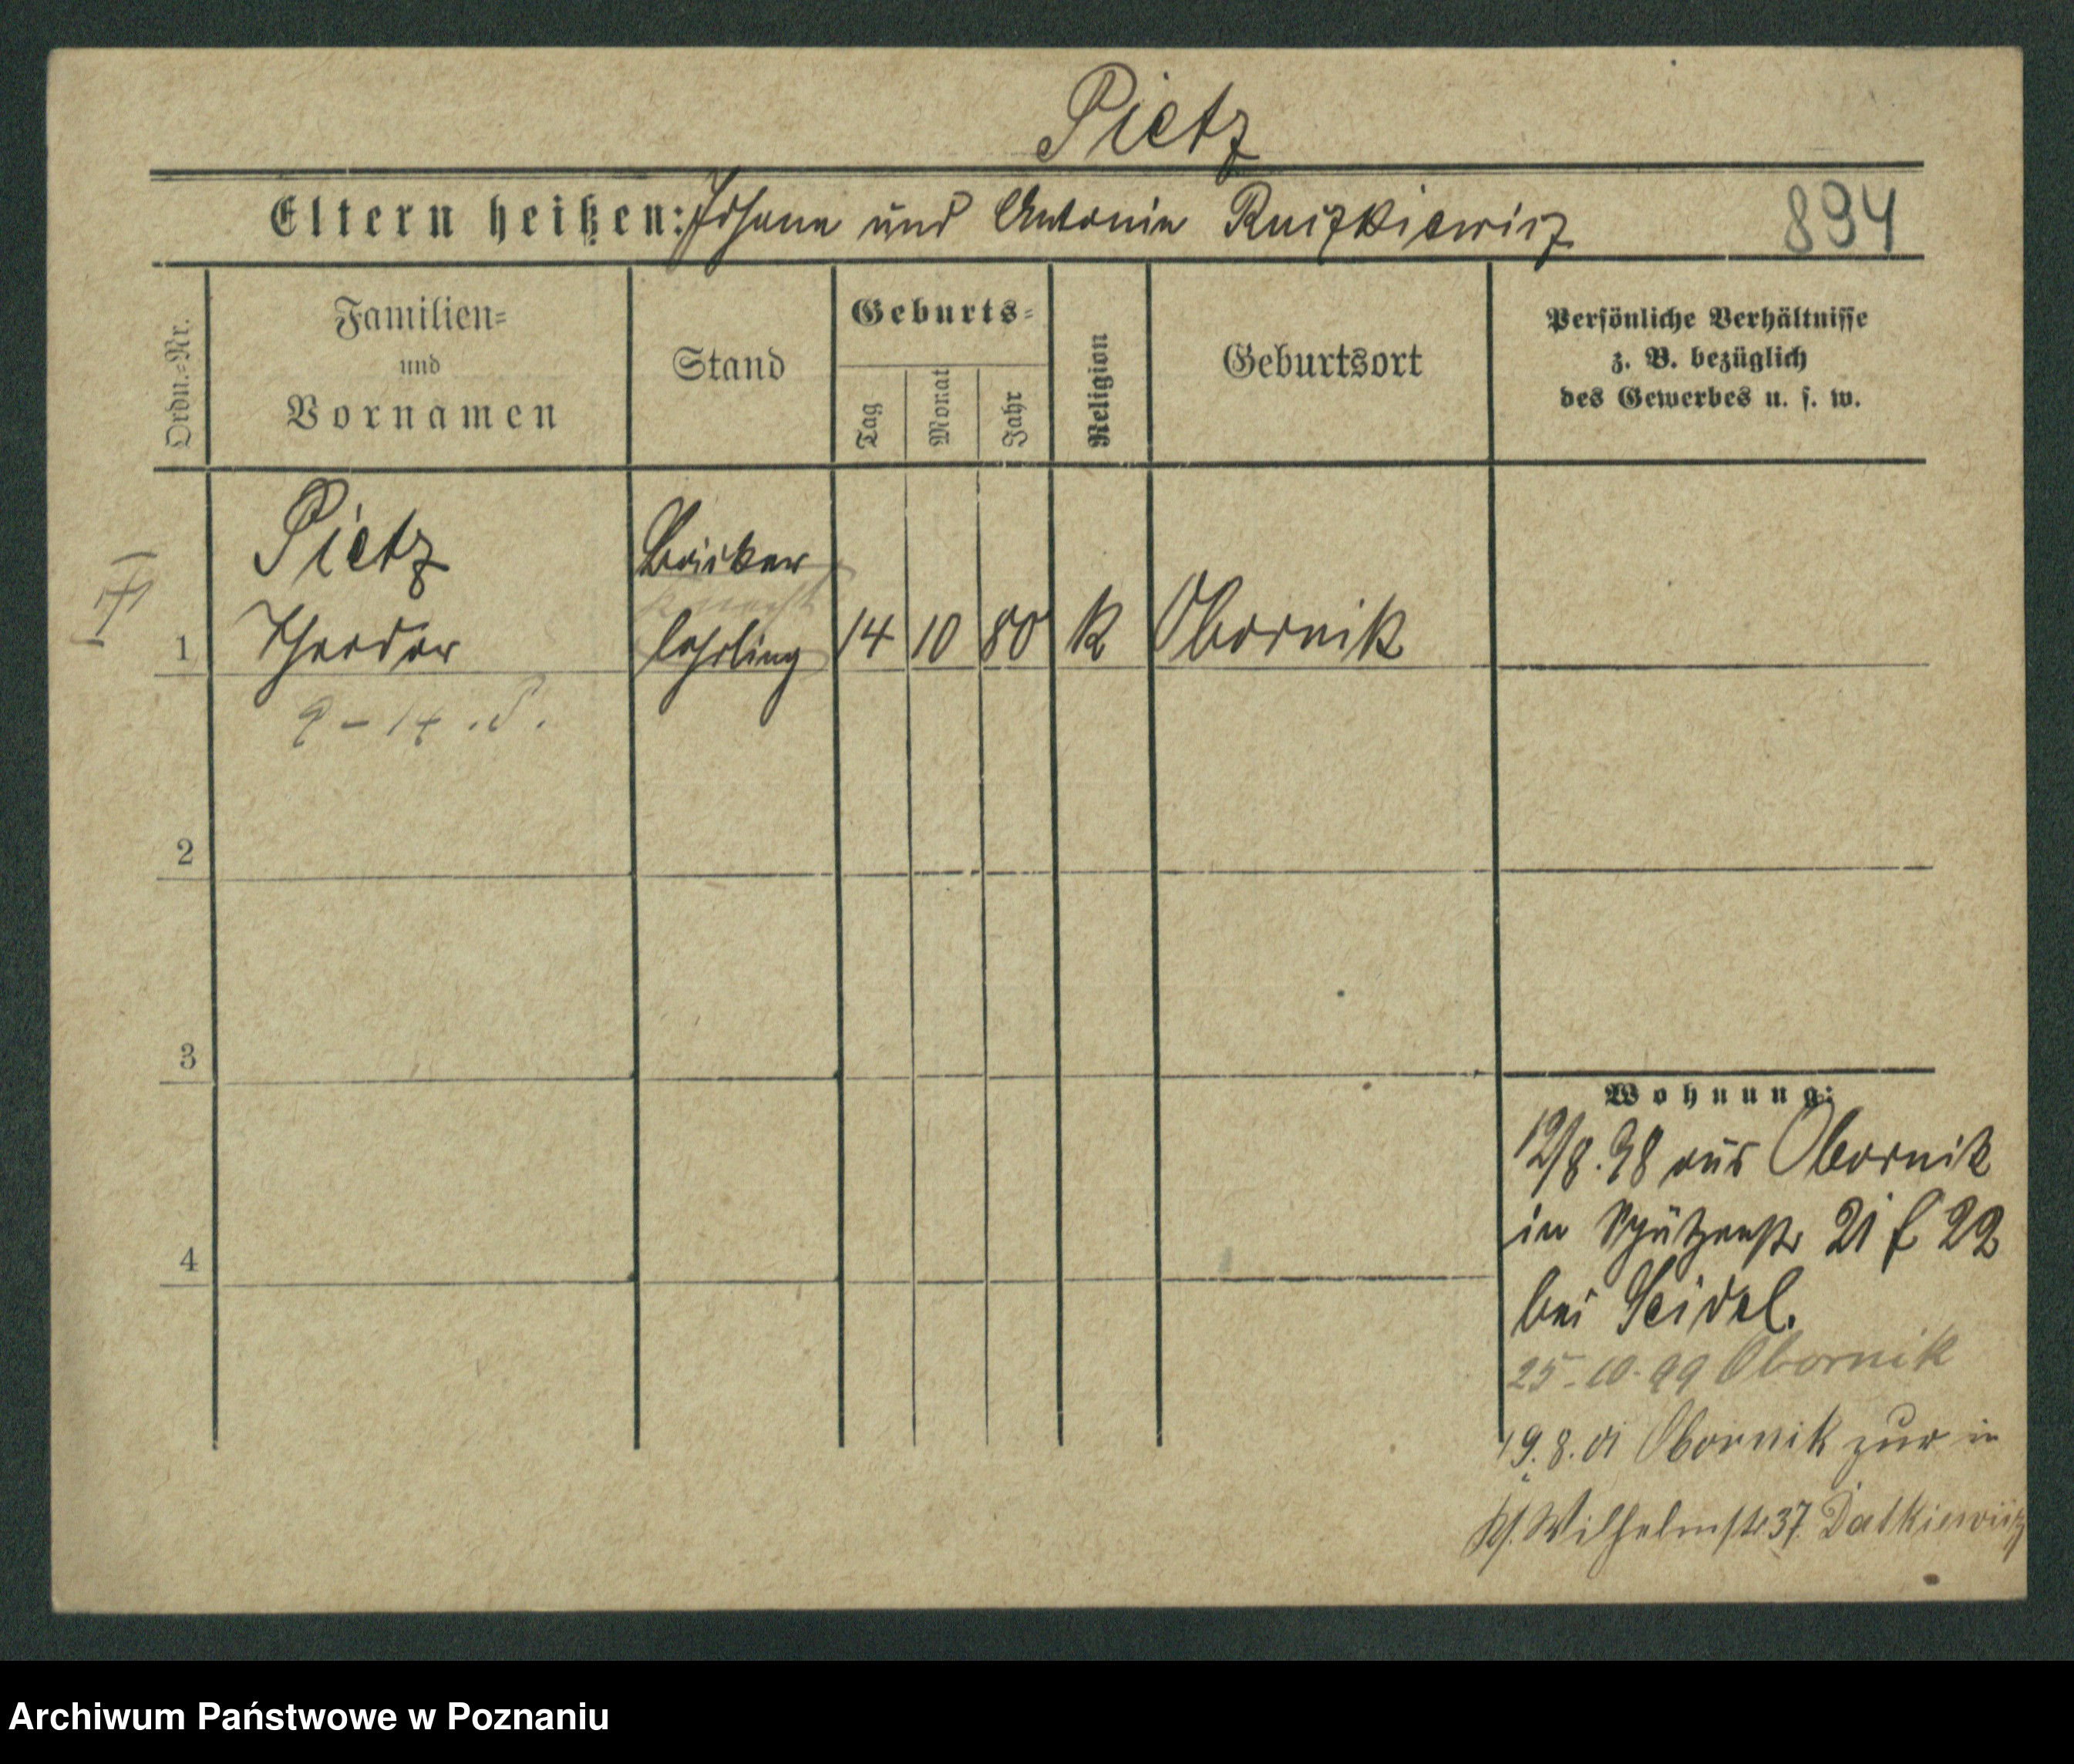 Pietz
Eltern heißen: Johann und Antonie Ruszkiewicz 894
Ordn.-Nr.
Familien-
und
Vornamen
Stand
Geburts-
Tag
Monat
Jahr
Religion
Geburtsort
Persönliche Verhältnisse
z. B. bezüglich
des Gewerbes u. s. w.
Pietz
Bäcker
knecht
1 Theodor lehrling 14 10 80 k Obornik
2
3
4
Wohnung:
12/8.98 aus Obornik
in Schützenstr 21 f 22
bei Seidel.
25-10-99 Obornik
19.8.01 Obornik zur in
Kl. Wilhelmstr. 37.
Archiwum Państwowe w Poznaniu